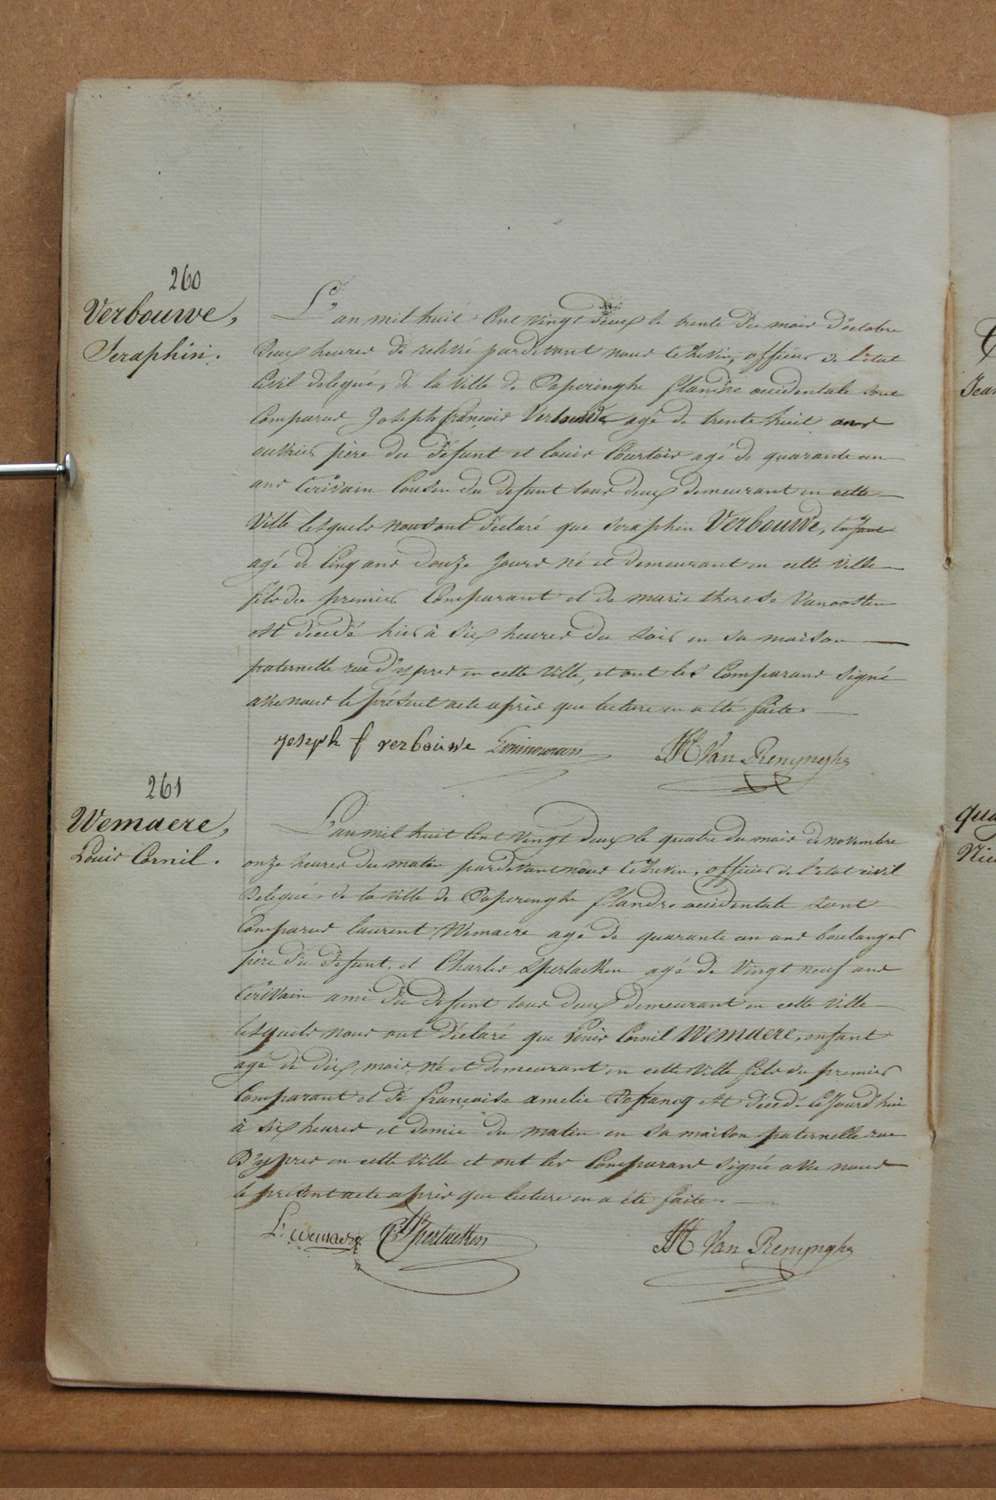 260
Verbouwe,
Seraphin.
L'an mil huit Cent vingt deux le trente du mois d'octobre
Deux heures de relevé pardevant nous Echevin, officier de l'etat
Civil delegué, de la ville de Poperinghe flandre occidentale sont
Comparus Joseph françois Verbouwe agé de trente huit ans
ouvrier père du défunt et Louis Courtois agé de quarante un
ans Ecrivain Cousin du defunt tous deux demeurant en cette
Ville lesquels nous ont déclaré que Seraphin Verbouwe, Enfant
agé de Cinq ans douze Jours né et demeurant en cette Ville
fils du premier Comparant et de marie therese Vanoosten
est decedé hier à Six heures du Soir en sa maison
paternelle rue d'ypres en cette Ville, et ont les Comparans Signé
avec nous le présent acte après que lecture en a été faite.
joseph f verbouwe
JH Van Renynghe
261
Wemaere,
Louis Cornil.
L'an mil huit Cent vingt deux le quatre du mois de novembre
onze heures du matin pardevant nous Echevin, officier de l'etat civil
Delegué de la ville de Poperinghe flandre occidentale sont
Comparus laurent Wemaere agé de quarante un ans boulanger
père du défunt, et Charles Sperlaeken agé de Vingt neuf ans
Ecrivain ami du defunt tous deux demeurant en cette Ville
lesquels nous ont déclaré que Louis Cornil Wemaere, enfant
agé de dix mois né et demeurant en cette Ville fils du premier
Comparant et de françoise amelie est decedé Cejourd'hui
à Six heures et demie du matin en Sa maison paternelle rue
D'ypres en cette Ville et ont les Comparans Signé avec nous
le présent acte après que lecture en a été faite.
L. Wemaere Ch Sperlaeken
JH Van Renynghe